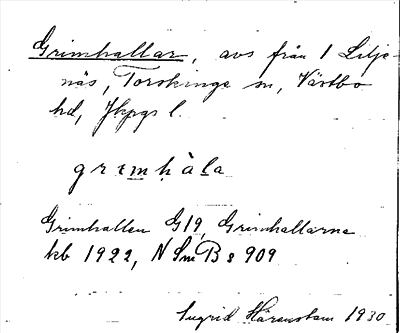 Grimhallar, avs från 1 Lilje-
näs, Torskinge sn, Västbo
hd, Jkpgs l.
grɪmhàla
Grimhallen G19, Grimhallarne
hb 1922, N Sm B s 909
Ingrid Härenstam 1930